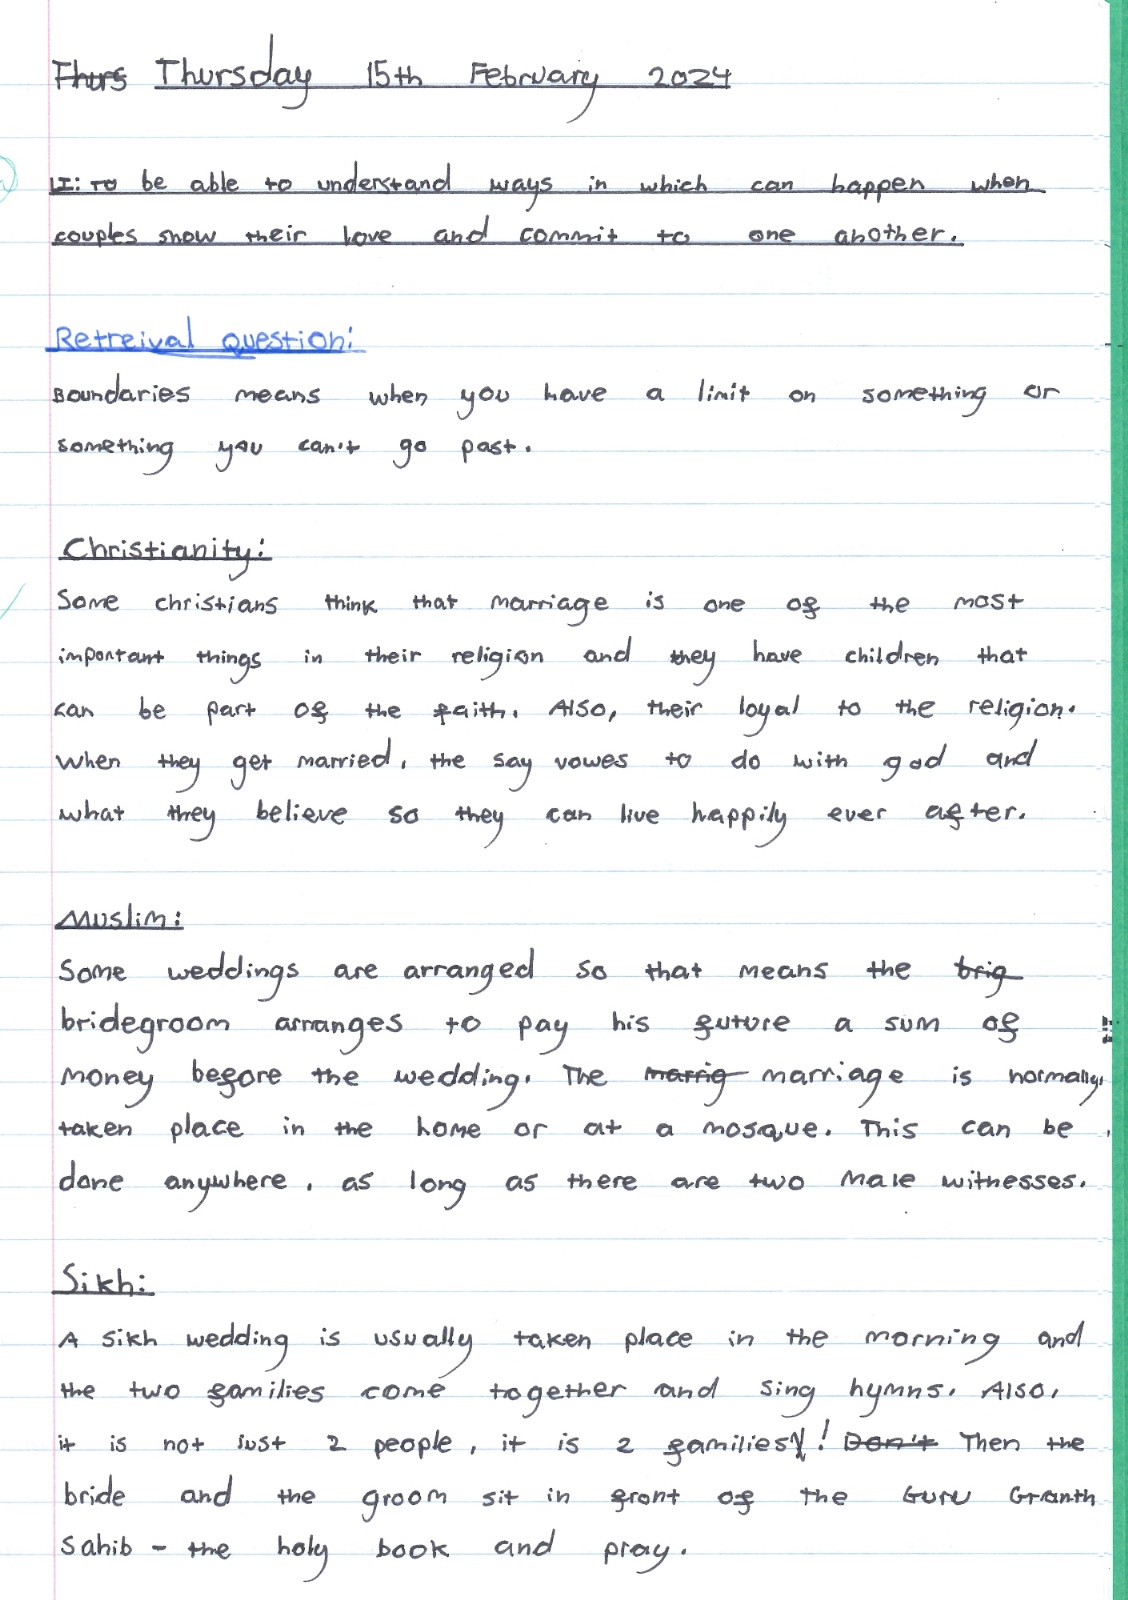 Thurs Thursday 15th February 2024
LI: To be able to understand ways in which can happen when
couples show their love and commit to one another.
Retreival question:
Boundaries means when you have a limit on something or
something you can't go past.
Christianity:
Some christians think that marriage is one of the most
important things in their religion and they have children that
can be part of the faith. Also, their loyal to the religion.
When they get married, the say vowes to do with god and
what they believe so they can live happily ever after.
Muslim:
Some weddings are arranged so that means the brig
bridegroom arranges to pay his future a sum of
money before the wedding. The marrig marriage is normally
taken place in the home or at a mosque. This can be
done anywhere, as long as there are two male witnesses.
Sikh:
A sikh wedding is usually taken place in the morning and
the two families come together and sing hymns. Also,
it is not just 2 people, it is 2 families! Don't Then the
bride and the groom sit in front of the Guru Granth
Sahib - the holy book and pray.